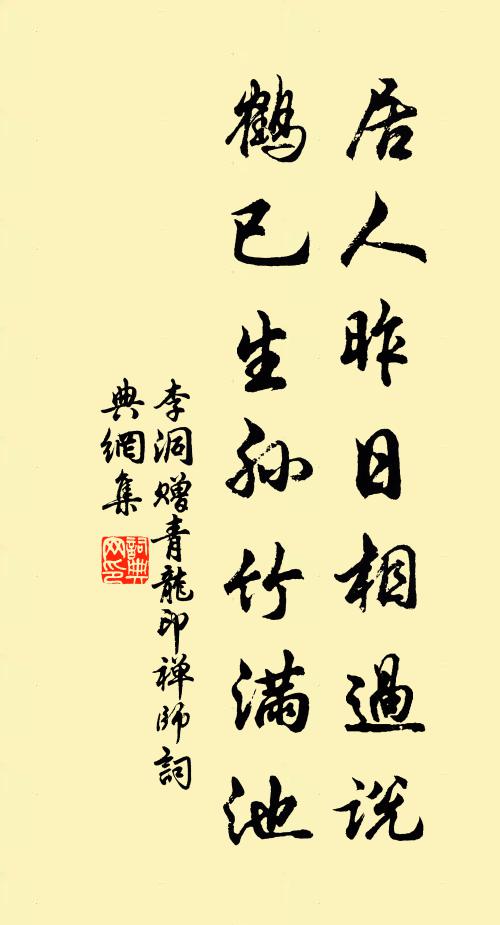 居人昨日相過説
鶴已生孙竹滿池
李洞贈青龍印禅師詞
典網集
詞典網印